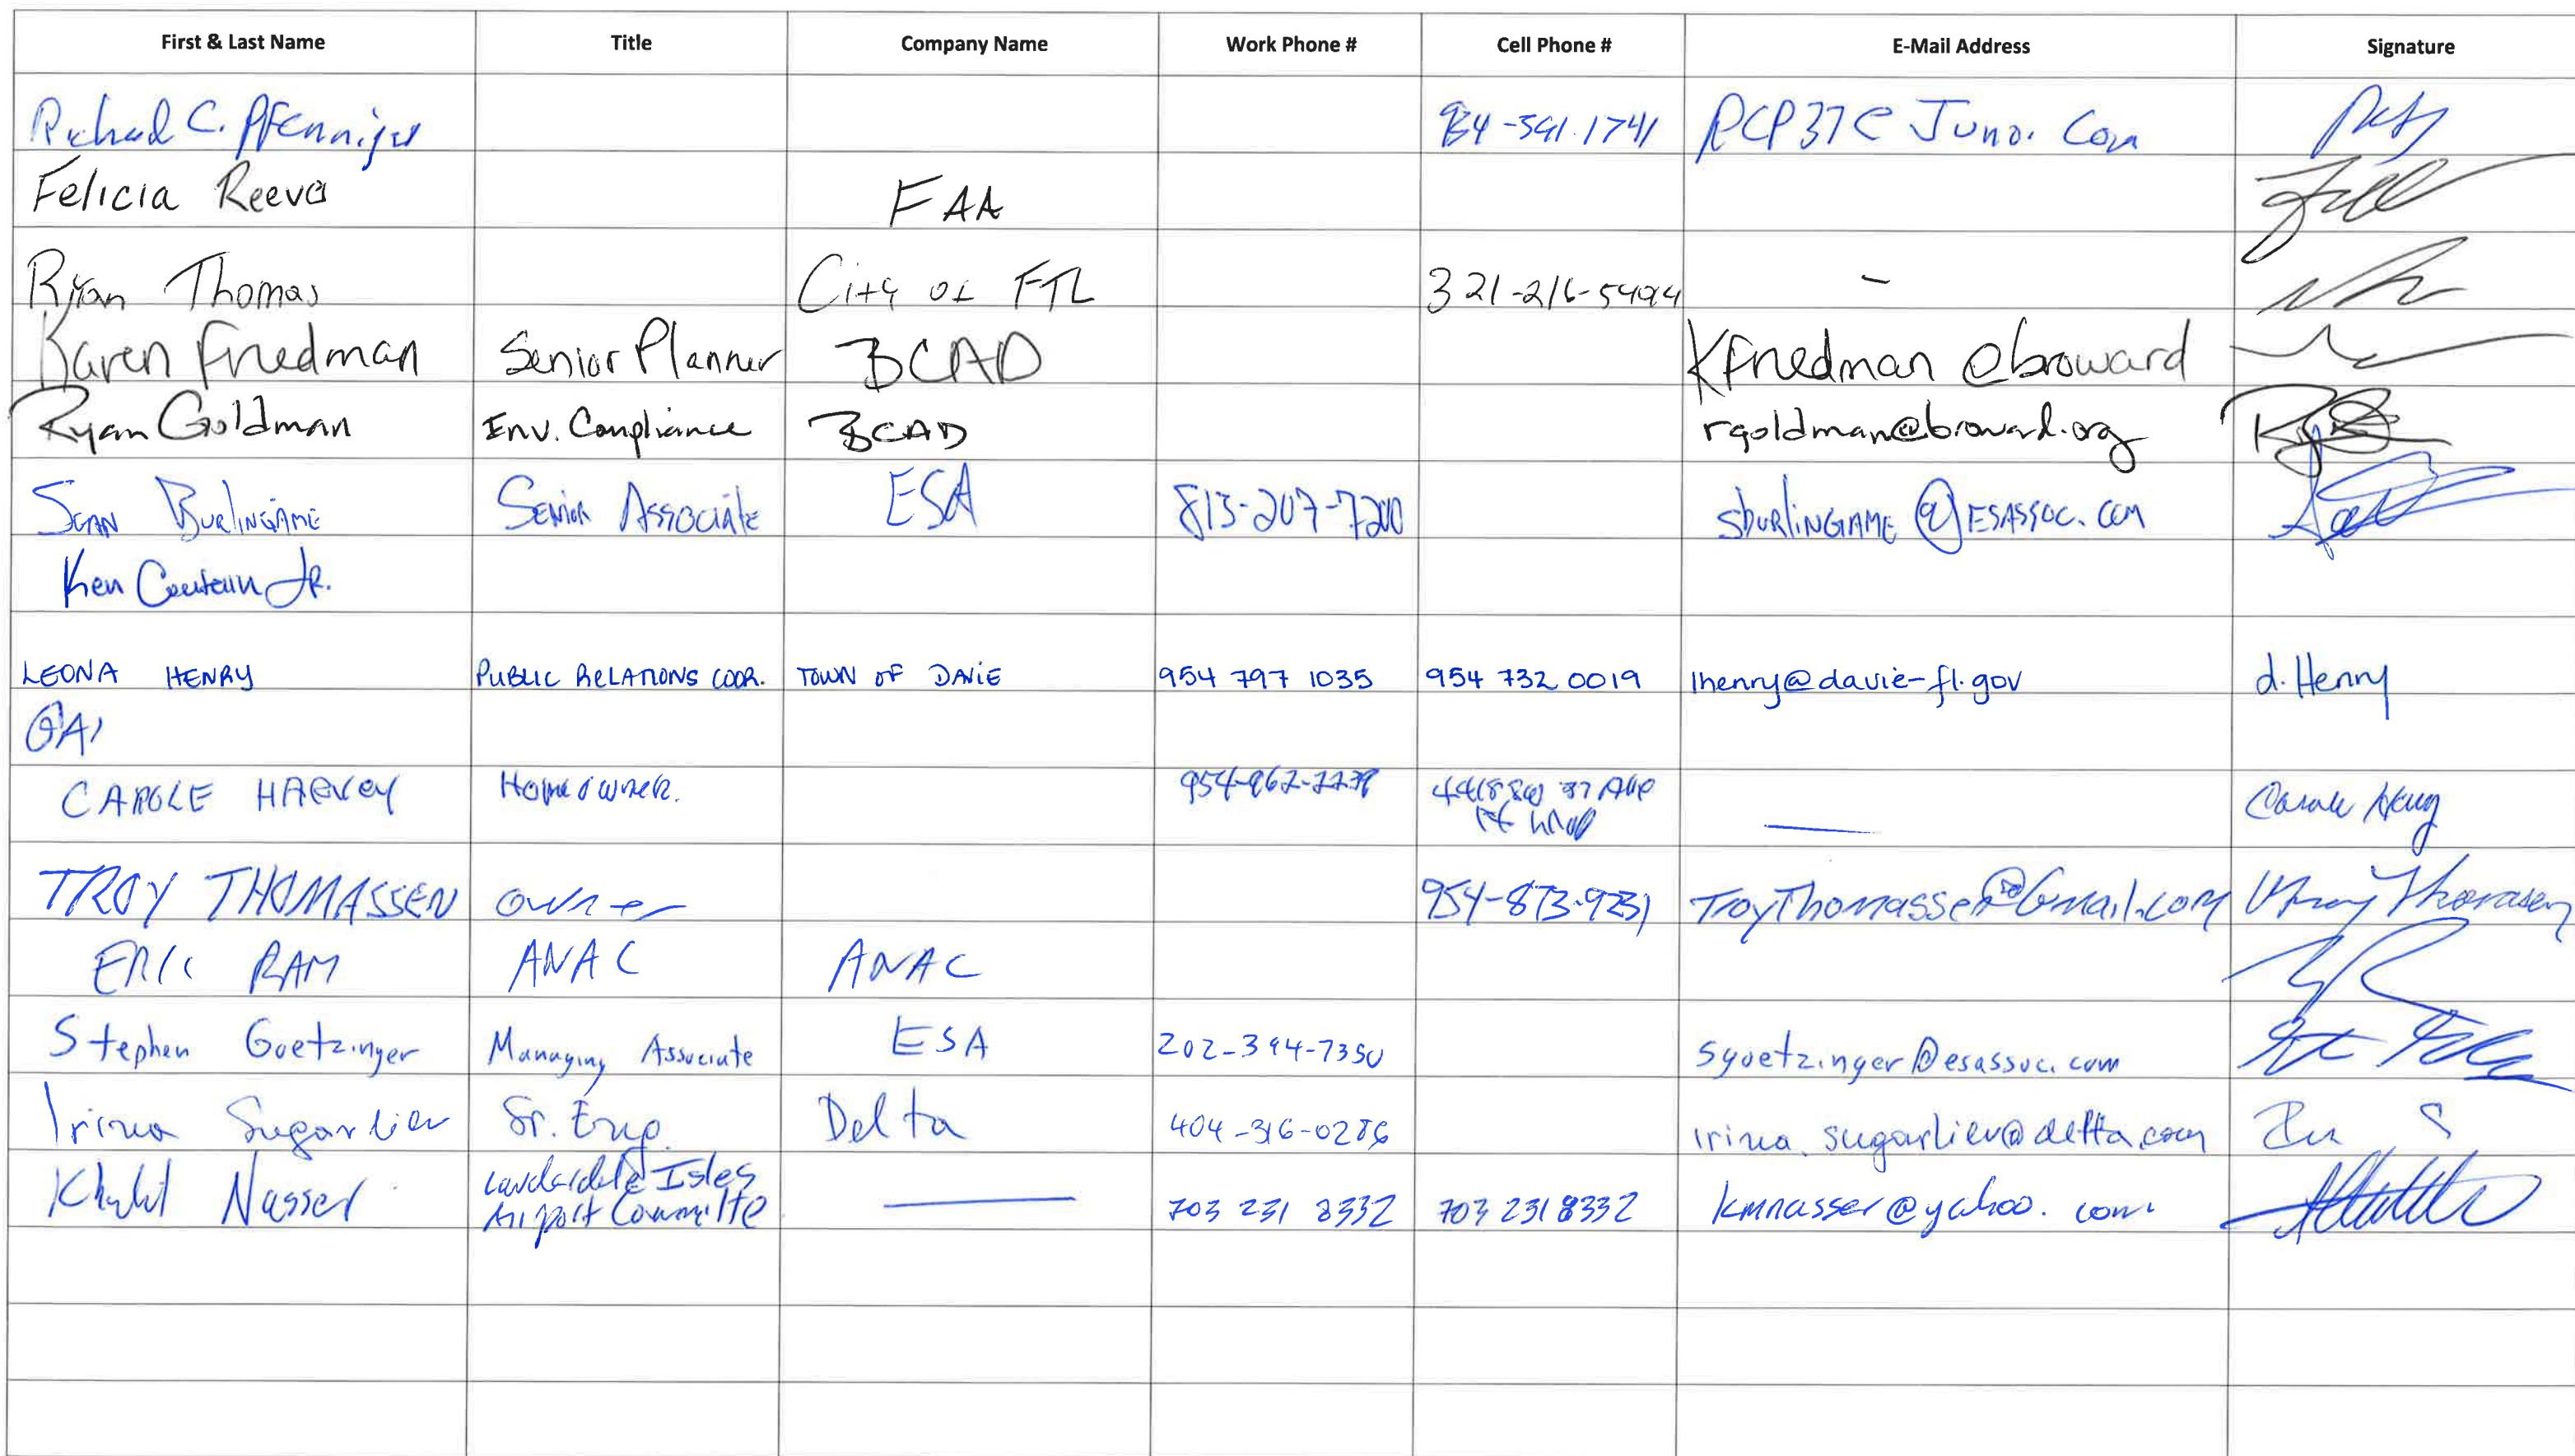 First & Last Name Title Company Name Work Phone # Cell Phone # E-Mail Address Signature
Richard C. Pfenniger 954-541.1741 RCP37@Juno.Com
Felicia Reeves FAA
Ryan Thomas City of FTL 321-216-5494 -
Karen Friedman Senior Planner BCAD Kfriedman @broward
Ryan Goldman Env. Compliance BCAD rgoldman@broward.org
Sean Burlingame Senior Associate ESA 813-207-7200 sburlingame@ESASSOC.COM
Ken Jr.
LEONA HENRY PUBLIC RELATIONS COOR. TOWN OF DAVIE 954 797 1035 954 732 0019 lhenry@davie-fl.gov d. Henry
CAROLE HARVEY Homeowner. Carole
TROY THOMASSEN owner TroyThomassen@Gmail.com Troy Thomassen
ERIC RAM ANAC ANAC
Stephen Goetzinger Managing Associate ESA 202-394-7350 sgoetzinger@esassoc.com
Irina Sugarliev Sr. Delta 404-316-0286 irina.sugarliev@delta.com
Khalil Nasser Lauderdale Isles 703 231 8332 703 231 8332 kmnasser@yahoo.com
Airport Committe